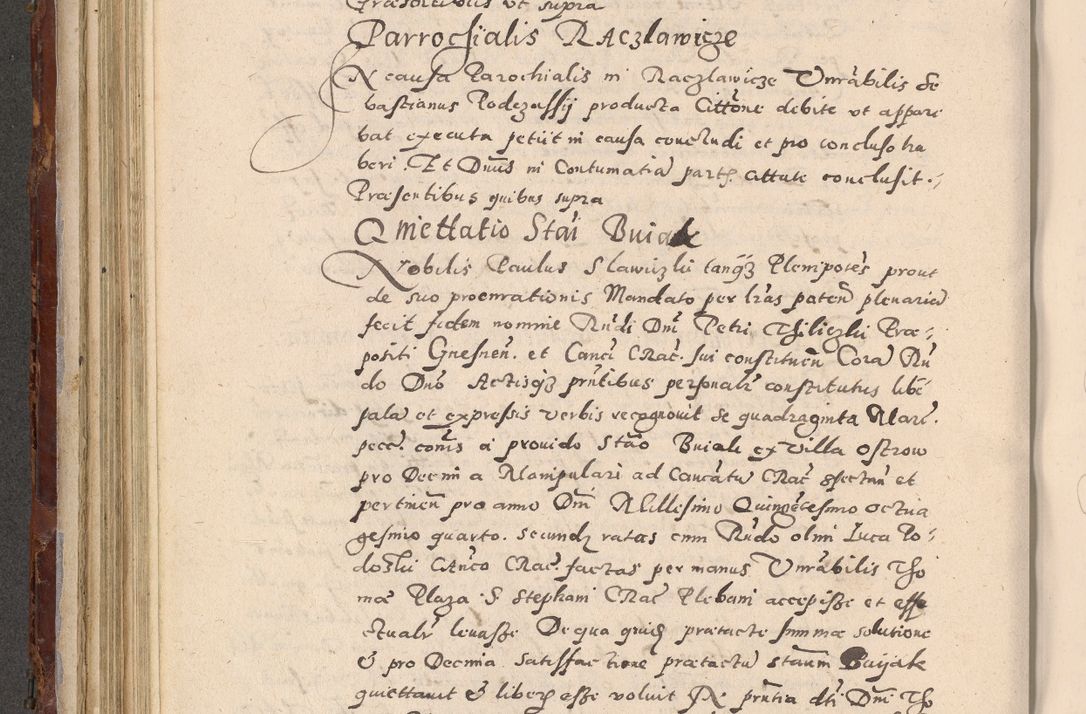 Præsentibus ut supra
Parrochialis Raczlawicze
IN causa Parochialis in Raczlawicze Vnrabilis Se
bastianus Podezassij producta Cittone debite vt appare
bat executa petiit in causa concludi et pro concluso ha
beri. Et Dnus in Contumatia part attute conclusit.
Præsentibus quibus supra
Quiettatio Stai Buiak
Nobilis Paulus Slawiczki tanq3 Plenipotes prout
de suo procurationis Mandato per lras paten plenaria
fecit fidem nomine Rndi Dni Petri Præ
positi Gnesnen. et Canci Crac. sui constituen Cora Rn
do Dno Actisq3 prntibus personalr constitutus libe
pala et expressis verbis recognouit se quadraginta Marc.
pecc. conis a prouido Stao Buiak ex Villa Ostrow
pro Decima Manipulari ad Cancatu Crac spectan et
pertinen pro anno Dni Millesimo Quingetesimo octua
gesimo quarto. secund ratas cum Rndo olim Luca Po
doski Canco Crac. factas per manus Vnrabilis Tho
mæ Plaza S. Stephani Crac Plebani accepisse et effe
ctualr leuasse De qua quid prætacte summæ solutione
& pro Decima Satisfactione prætactu stanum Buijak
quiettauit & liber esse voluit In prntia dti Dni Tho